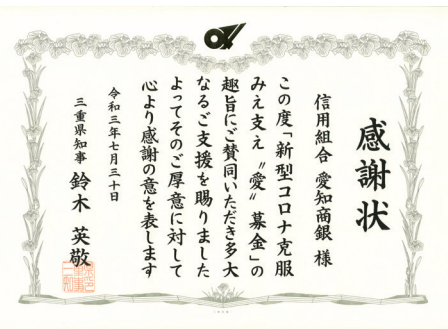 感謝状
信用組合 愛知商銀 様
この度「新型コロナ克服
みえ支え〝愛〟募金」の
趣旨にご賛同いただき多大
なるご支援を賜りました
よってそのご厚意に対して
心より感謝の意を表します
令和三年七月三十日
三重県知事 鈴木 英敬